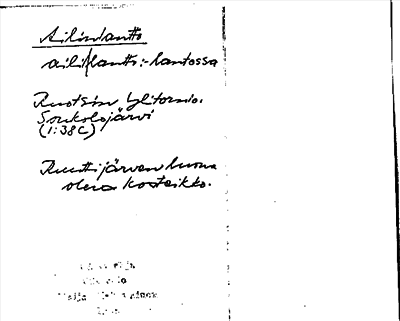 Ailinlantto
aili|lantto:-lantossa
Ruotsin Ylitornio.
Soukolojärvi
(1:38C)
Ruuttijärven luona
oleva kosteikko.